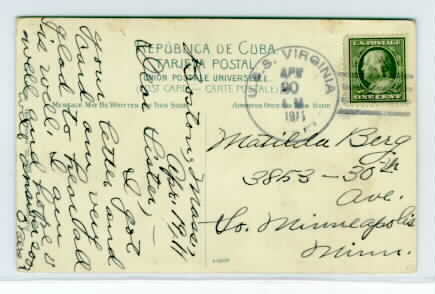 REPÚBLICA DE CUBA.
TARJETA POSTAL
UNION POSTALE UNIVERSELLE.
(POST CARD — CARTE POSTALE)
MESSAGE MAY BE WRITTEN ON THIS SIDE
ADDRESS ON THIS SIDE
U. S. S. VIRGINIA
APR
20
A.M.
1911
U.S. POSTAGE
ONE CENT
Matilda Berg
3853 – 30th
Ave.
So. Minneapolis
Minn.
Boston, Mass.
Apr. 19, 11
Dear Sister, —
I got
your letter and
Card and very
glad to hear all
is well. I am
well and hope